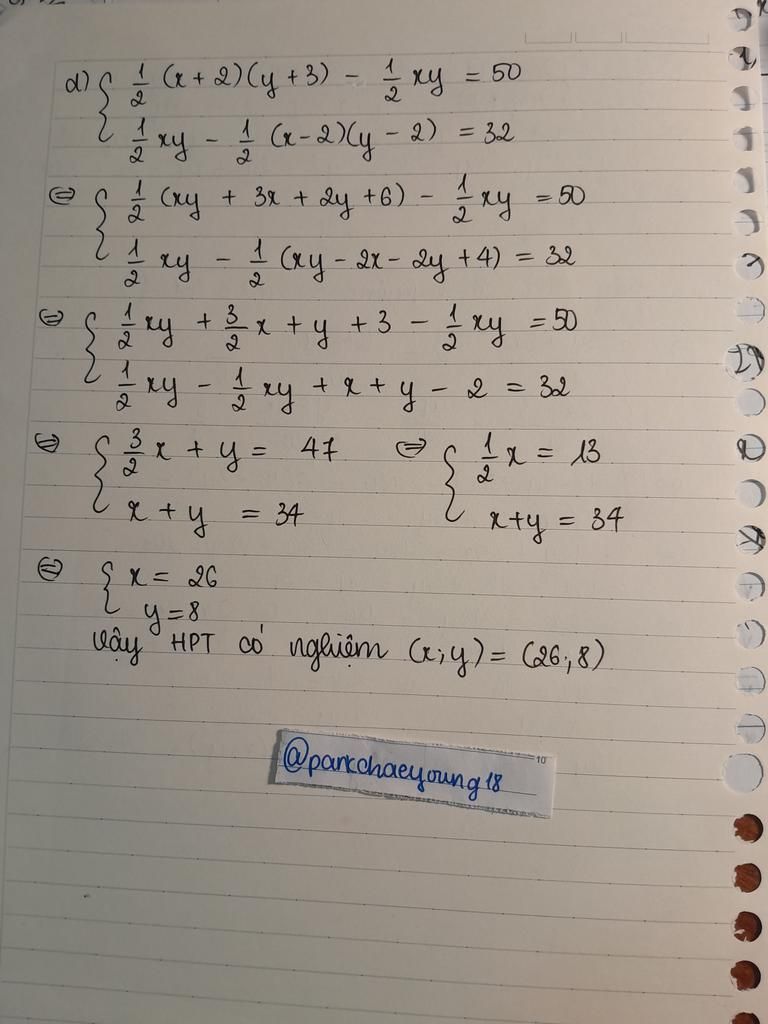 d) { 1/2 (x + 2)(y + 3) - 1/2 xy = 50
1/2 xy - 1/2 (x - 2)(y - 2) = 32
⇔ { 1/2 (xy + 3x + 2y + 6) - 1/2 xy = 50
1/2 xy - 1/2 (xy - 2x - 2y + 4) = 32
⇔ { 1/2 xy + 3/2 x + y + 3 - 1/2 xy = 50
1/2 xy - 1/2 xy + x + y - 2 = 32
⇔ { 3/2 x + y = 47 ⇔ { 1/2 x = 13
x + y = 34 x + y = 34
⇔ { x = 26
y = 8
Vậy HPT có nghiệm (x; y) = (26; 8)
@parkchaeyoung18
10